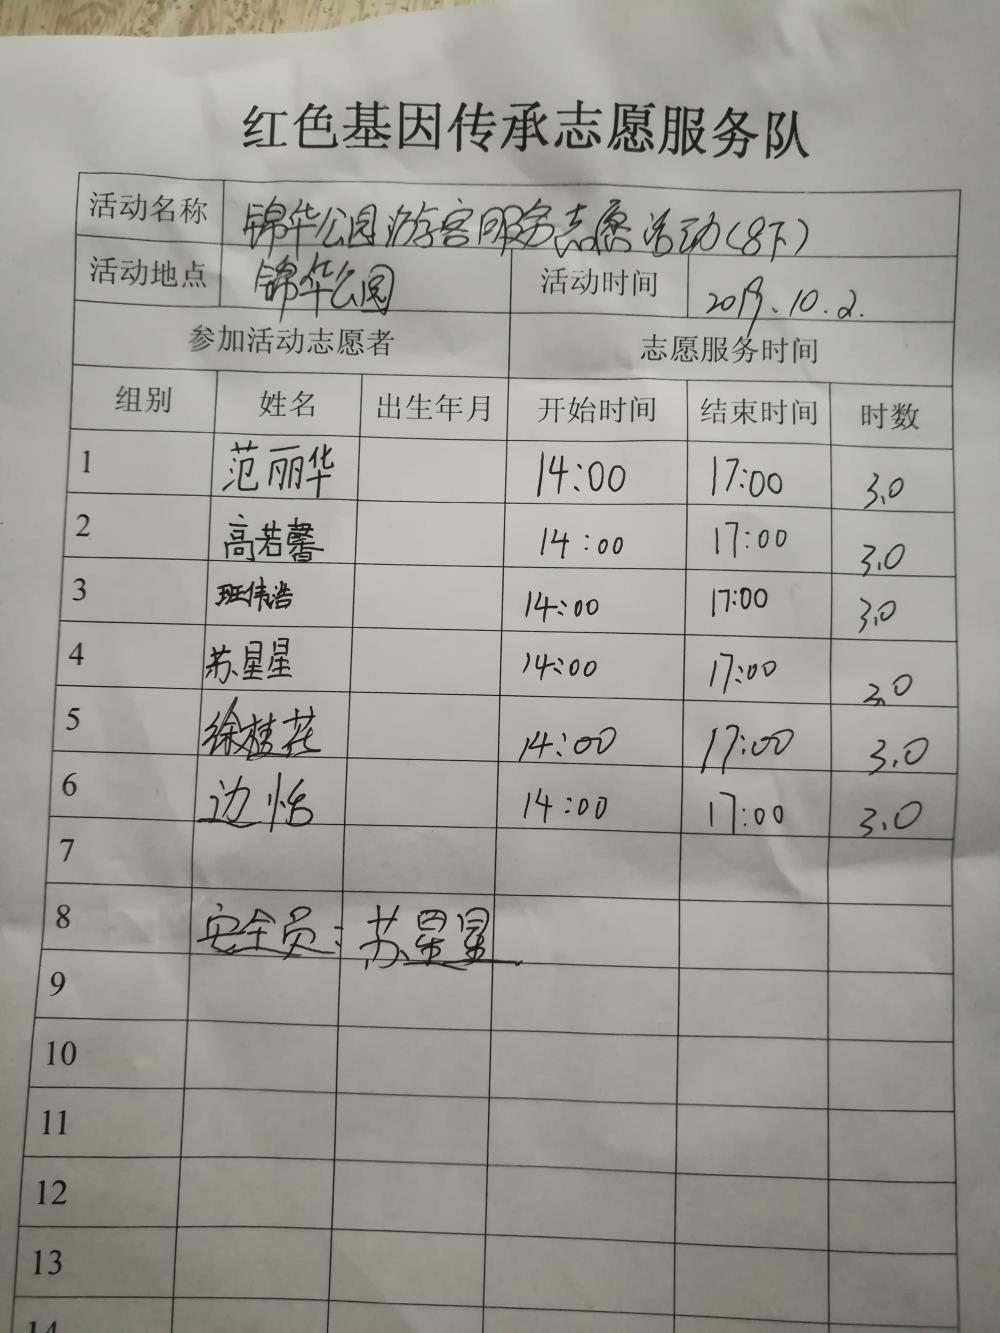 红色基因传承志愿服务队
活动名称 锦华公园游客服务志愿活动(8下)
活动地点 锦华公园 活动时间 2019.10.2.
参加活动志愿者 志愿服务时间
组别 姓名 出生年月 开始时间 结束时间 时数
1 范丽华 14:00 17:00 3.0
2 高若馨 14:00 17:00 3.0
3 班伟浩 14:00 17:00 3.0
4 苏星星 14:00 17:00 3.0
5 徐桂花 14:00 17:00 3.0
6 边怡 14:00 17:00 3.0
7
8 安全员: 苏星星
9
10
11
12
13
14